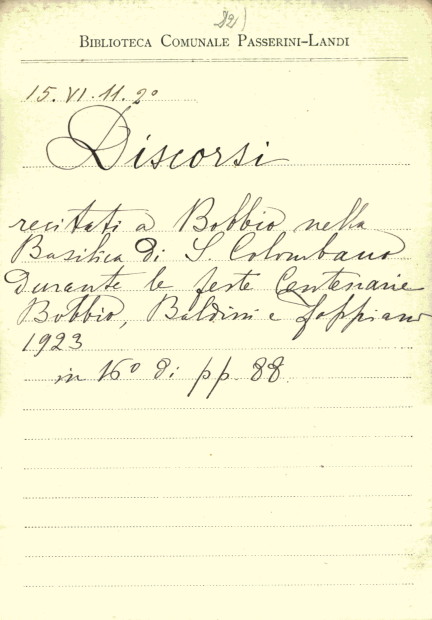 22)
BIBLIOTECA COMUNALE PASSERINI-LANDI
15.VI.11.2º
Discorsi
recitati a Bobbio nella
Basilica di S. Colombano
durante le feste Centenarie
Bobbio, Baldini e Foppiano
1923
in 16º di pp. 88.